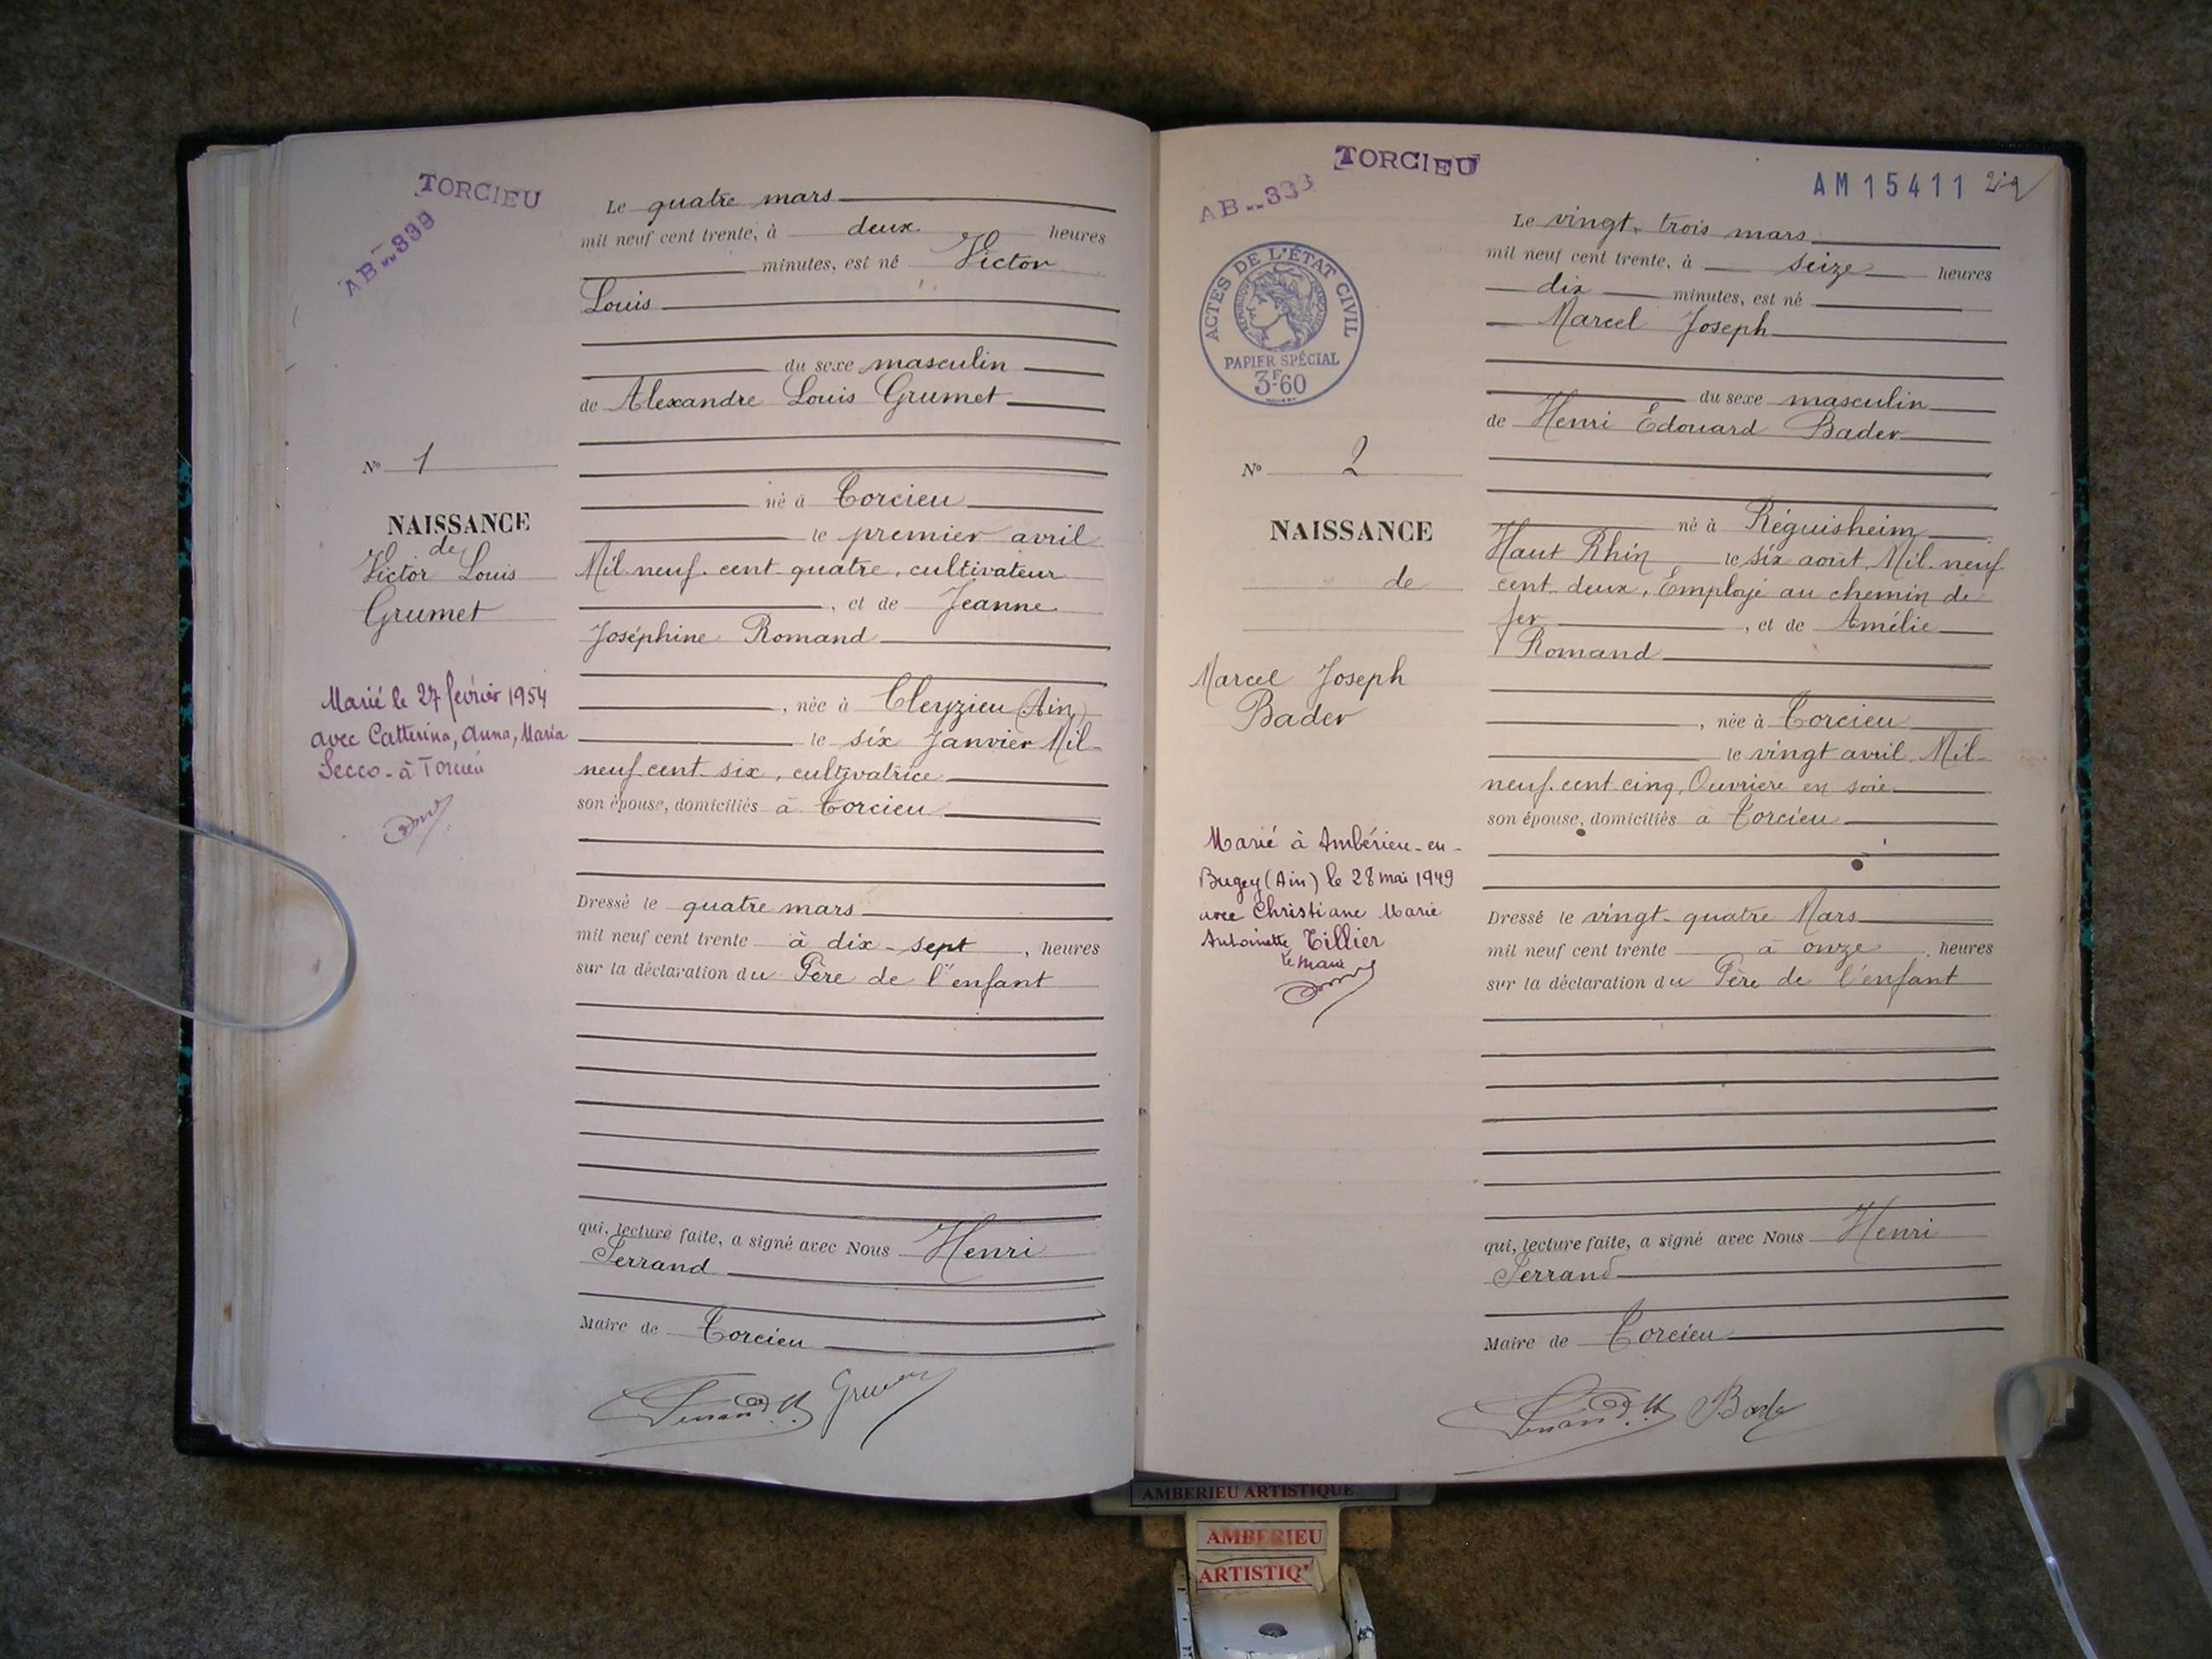 TORCIEU
AB 339
Le quatre mars
mil neuf cent trente, à deux heures
minutes, est né Victor
Louis
du sexe masculin
de Alexandre Louis Grumet
N° 1
né à Torcieu
NAISSANCE
de
Victor Louis
Grumet
le premier avril
Mil neuf cent quatre, cultivateur
, et de Jeanne
Joséphine Romand
Marié le 27 février 1954
avec Catterina, Anna, Maria
Secco - à Torcieu
, née à Cleyzieu (Ain)
le six Janvier Mil-
neuf cent six, cultivatrice
son épouse, domiciliés à Torcieu
Dressé le quatre mars
mil neuf cent trente à dix-sept, heures
sur la déclaration du Père de l'enfant
qui, lecture faite, a signé avec Nous Henri
Ferrand
Maire de Torcieu
TORCIEU
AB 333
AM 15411
ACTES DE L'ÉTAT CIVIL
RÉPUBLIQUE FRANÇAISE
PAPIER SPÉCIAL
3F60
Le vingt-trois mars
mil neuf cent trente, à seize heures
dix minutes, est né
Marcel Joseph
du sexe masculin
de Henri Édouard Bader
N° 2
NAISSANCE
de
Marcel Joseph
Bader
né à Réguisheim
Haut Rhin le six août Mil neuf
cent deux, Employé au chemin de
fer, et de Amélie
Romand
, née à Torcieu
le vingt avril Mil-
neuf cent cinq, Ouvrière en soie
son épouse, domiciliés à Torcieu
Marié à Ambérieu-en-
Bugey (Ain) le 28 mai 1949
avec Christiane Marie
Antoinette Tillier
Le Maire
Dressé le vingt-quatre Mars
mil neuf cent trente à onze heures
sur la déclaration du Père de l'enfant
qui, lecture faite, a signé avec Nous Henri
Ferrand
Maire de Torcieu
AMBERIEU ARTISTIQUE
AMBERIEU
ARTISTIQ